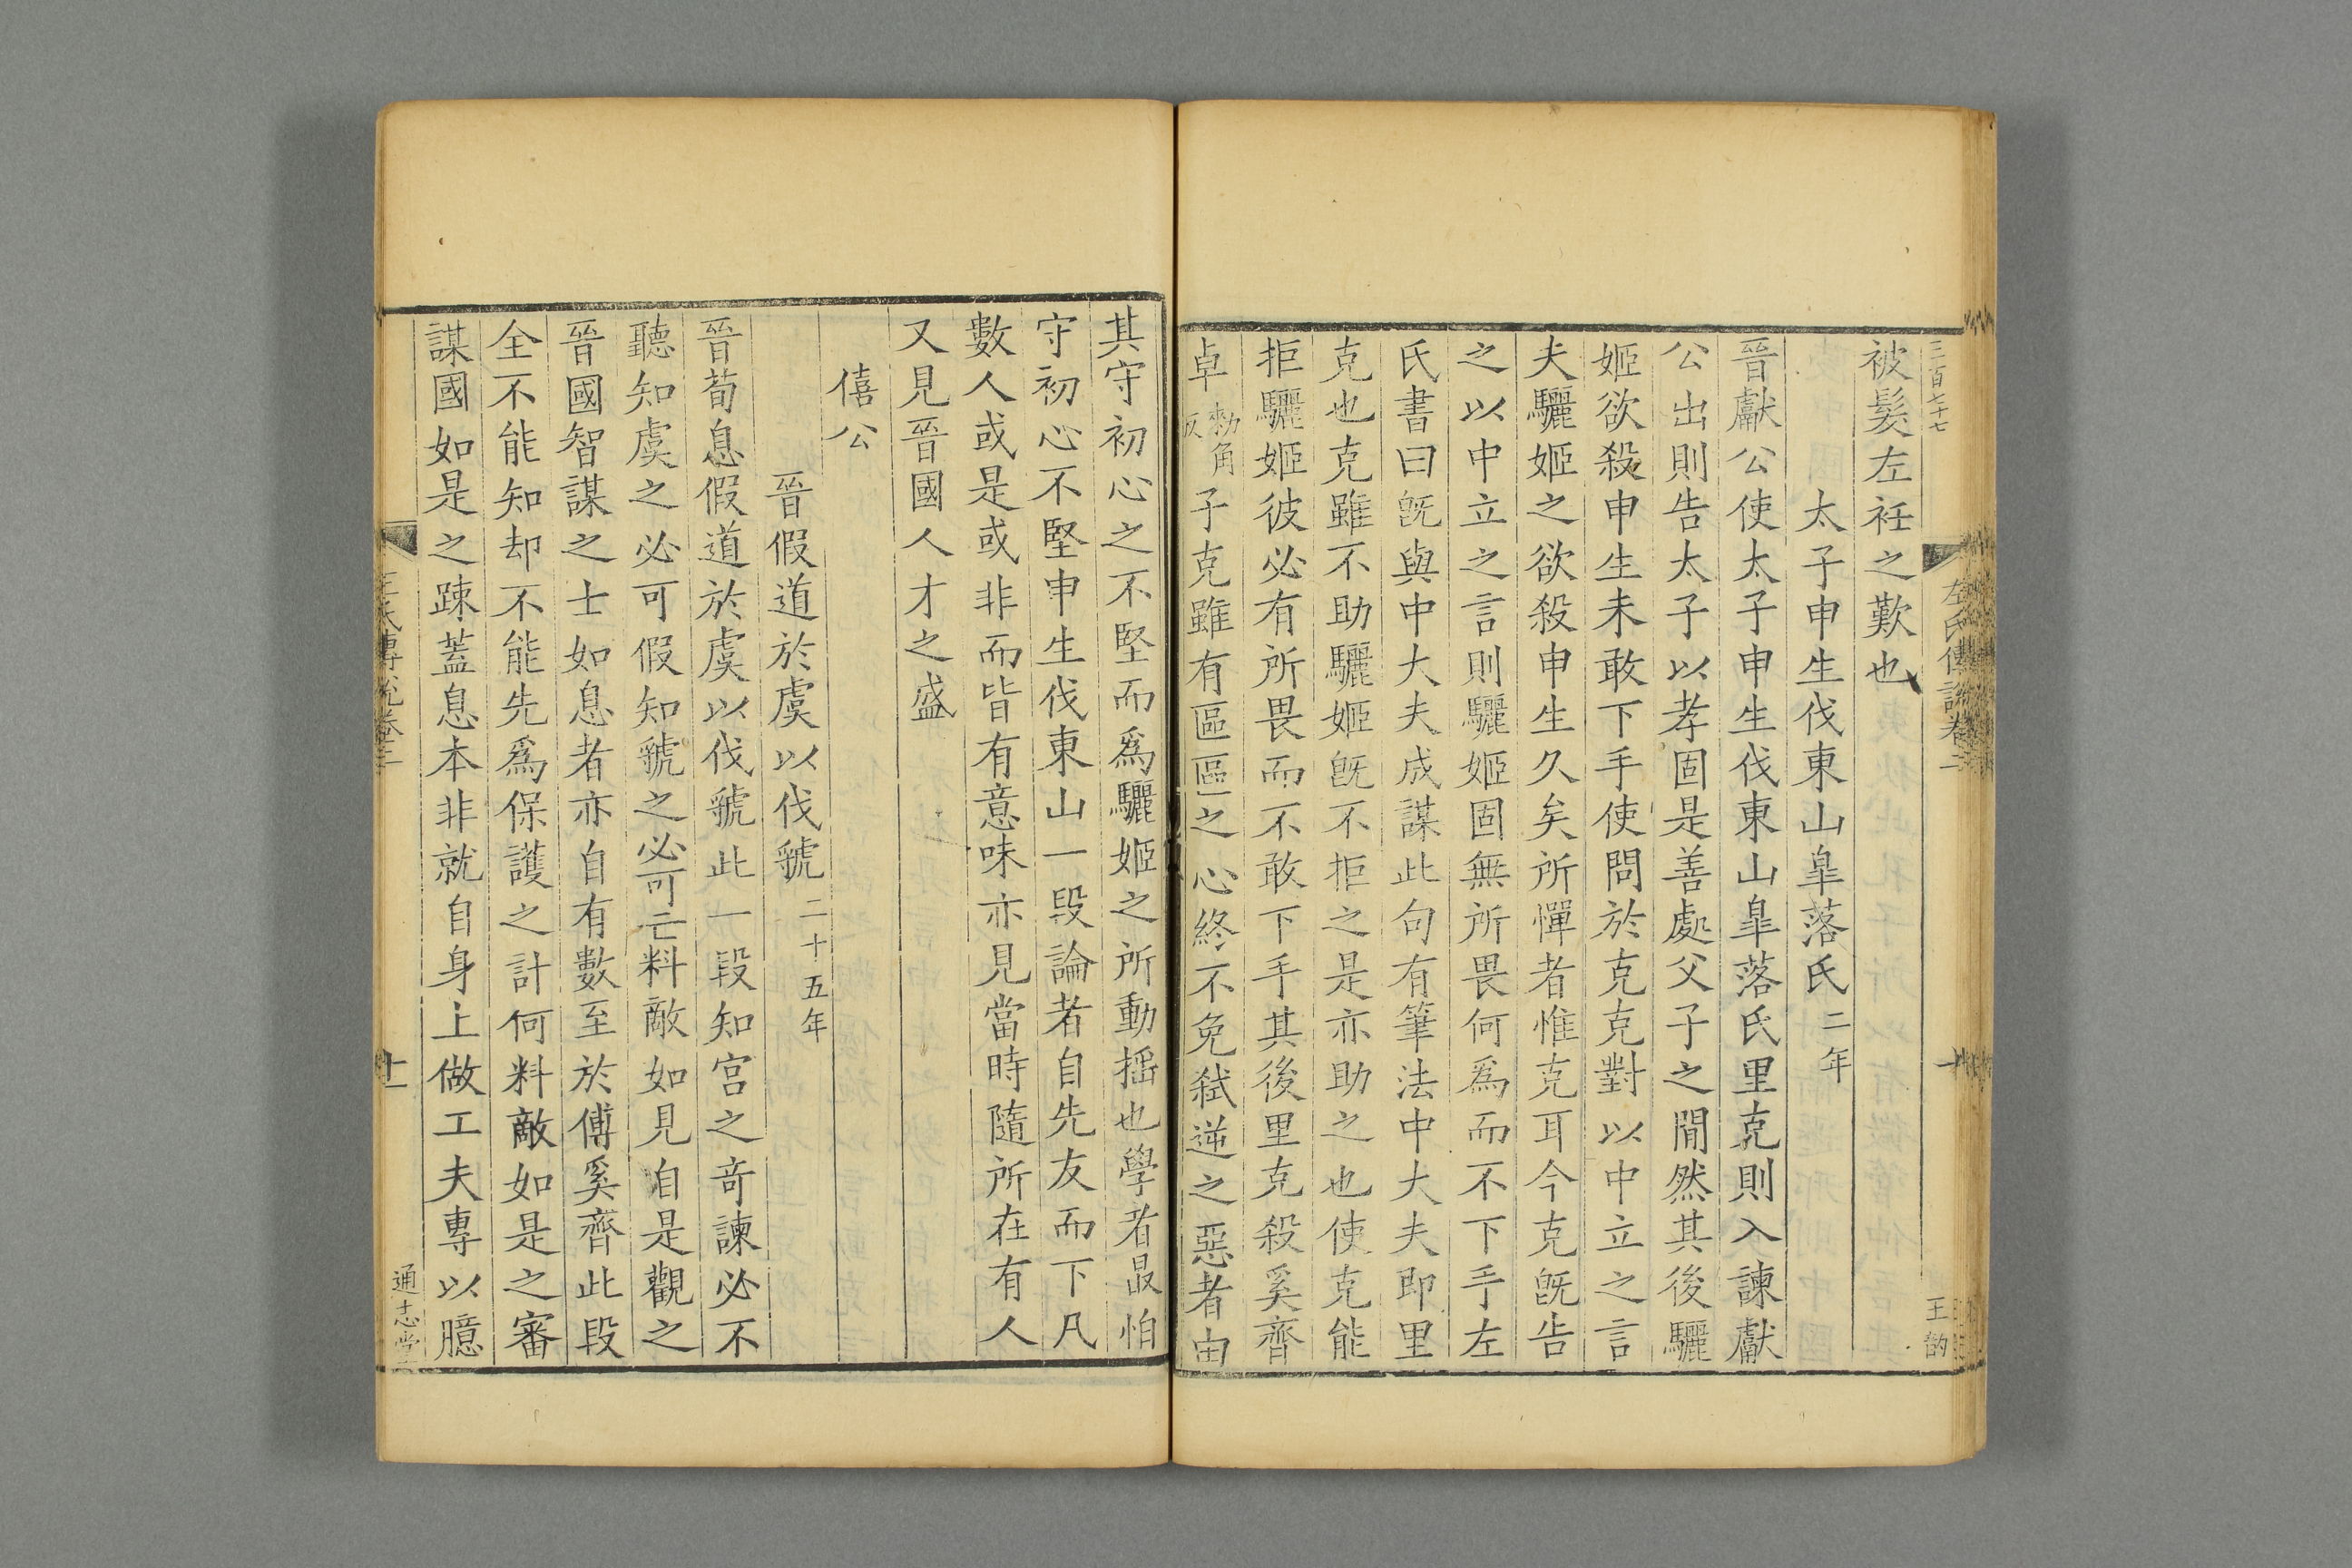 三百七十七
左氏傳說卷二
十
王韵
被髮左衽之歎也
太子申生伐東山臯落氏二年
晉獻公使太子申生伐東山臯落氏里克則入諫獻
公出則告太子以孝固是善處父子之間然其後驪
姬欲殺申生未敢下手使問於克克對以中立之言
夫驪姬之欲殺申生久矣所憚者惟克耳今克旣告
之以中立之言則驪姬固無所畏何爲而不下手左
氏書曰旣與中大夫成謀此句有筆法中大夫即里
克也克雖不助驪姬旣不拒之是亦助之也使克能
拒驪姬彼必有所畏而不敢下手其後里克殺奚齊
卓勑角反子克雖有區區之心終不免弑逆之惡者由
其守初心之不堅而爲驪姬之所動揺也學者最怕
守初心不堅申生伐東山一段論者自先友而下凡
數人或是或非而皆有意味亦見當時隨所在有人
又見晉國人才之盛
僖公
晉假道於虞以伐虢二十五年
晉荀息假道於虞以伐虢此一段知宫之竒諫必不
聽知虞之必可假知虢之必可亡料敵如見自是觀之
晉國智謀之士如息者亦自有數至於傅奚齊此段
全不能知却不能先爲保護之計何料敵如是之審
謀國如是之踈蓋息本非就自身上做工夫專以臆
左氏傳說卷二
十一
通志堂